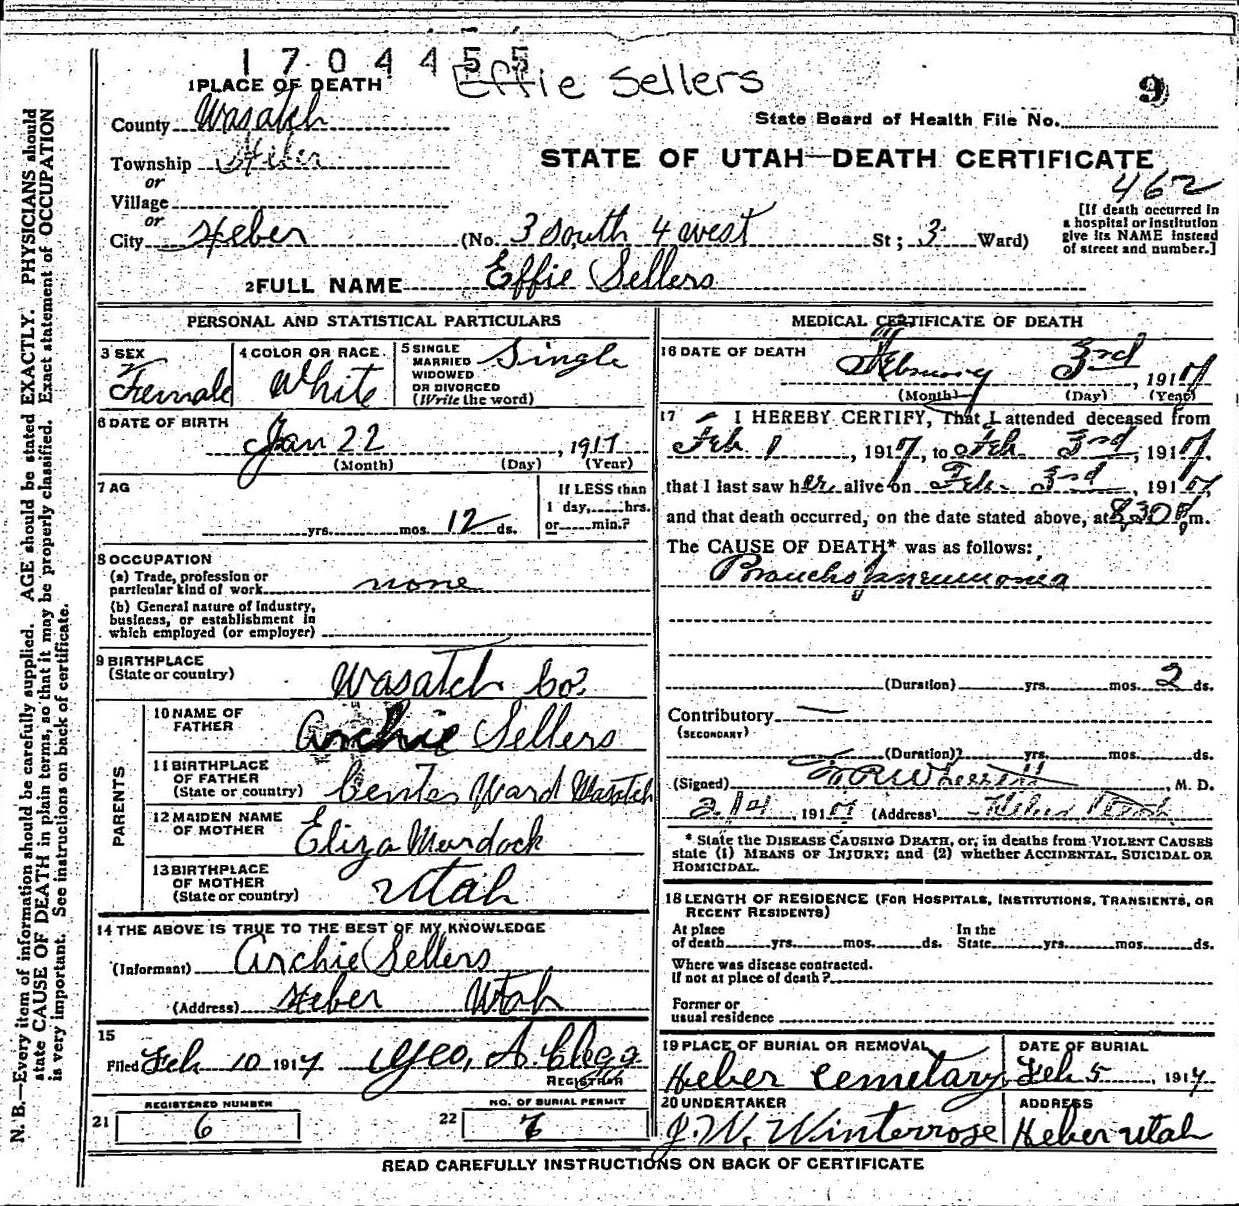 1704455
Effie Sellers
9
1 PLACE OF DEATH
County Wasatch
State Board of Health File No.
Township Heber
STATE OF UTAH—DEATH CERTIFICATE
or
462
Village
or
City Heber (No. 3 south 4 west St; 3 Ward)
[If death occurred in a hospital or institution give its NAME instead of street and number.]
2 FULL NAME Effie Sellers
PERSONAL AND STATISTICAL PARTICULARS
3 SEX Female
4 COLOR OR RACE. White
5 SINGLE MARRIED WIDOWED OR DIVORCED (Write the word) Single
6 DATE OF BIRTH
Jan 22, 1917
(Month) (Day) (Year)
7 AG
yrs. mos. 12 ds.
If LESS than 1 day, hrs. or min.?
8 OCCUPATION
(a) Trade, profession or particular kind of work none
(b) General nature of Industry, business, or establishment in which employed (or employer)
9 BIRTHPLACE
(State or country) Wasatch Co.
PARENTS
10 NAME OF FATHER Archie Sellers
11 BIRTHPLACE OF FATHER (State or country) Center Ward Wasatch
12 MAIDEN NAME OF MOTHER Eliza Murdock
13 BIRTHPLACE OF MOTHER (State or country) Utah
14 THE ABOVE IS TRUE TO THE BEST OF MY KNOWLEDGE
(Informant) Archie Sellers
(Address) Heber Utah
15
Filed Feb 10 1917 Geo. A. Clegg
REGISTRAR
21 REGISTERED NUMBER 6
22 NO. OF BURIAL PERMIT
MEDICAL CERTIFICATE OF DEATH
16 DATE OF DEATH
February 3rd, 1917
(Month) (Day) (Year)
17 I HEREBY CERTIFY, That I attended deceased from
Feb. 1, 1917, to Feb. 3rd, 1917.
that I last saw her alive on Feb. 3rd 1917
and that death occurred, on the date stated above, at 8:30 P m.
The CAUSE OF DEATH* was as follows:
Broncho pneumonia
(Duration) yrs. mos. 2 ds.
Contributory —
(SECONDARY)
(Duration)? yrs. mos. ds.
(Signed) M. D.
2/4, 1917 (Address) Heber Utah
* State the DISEASE CAUSING DEATH, or, in deaths from VIOLENT CAUSES state (1) MEANS OF INJURY; and (2) whether ACCIDENTAL, SUICIDAL OR HOMICIDAL.
18 LENGTH OF RESIDENCE (FOR HOSPITALS, INSTITUTIONS, TRANSIENTS, OR RECENT RESIDENTS)
At place of death yrs. mos. ds. In the State yrs. mos. ds.
Where was disease contracted. If not at place of death?
Former or usual residence
19 PLACE OF BURIAL OR REMOVAL Heber Cemetary
DATE OF BURIAL Feb 5, 1917
20 UNDERTAKER J. W. Winterrose
ADDRESS Heber Utah
READ CAREFULLY INSTRUCTIONS ON BACK OF CERTIFICATE
N. B.—Every item of information should be carefully supplied. AGE should be stated EXACTLY. PHYSICIANS should
state CAUSE OF DEATH in plain terms, so that it may be properly classified. Exact statement of OCCUPATION
is very important. See instructions on back of certificate.